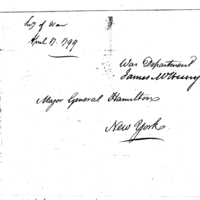 Secy of War
April 17. 1799
War Department
James McHenry
Major General Hamilton
New York